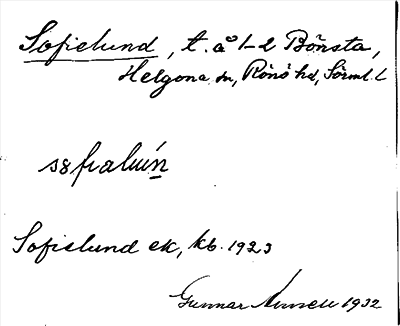 Sofielund, t. å 1-2 Bönsta,
Helgona sn, Rönö hd, Sörml. l
Sofielund ek, kb. 1923
Gunnar 1932